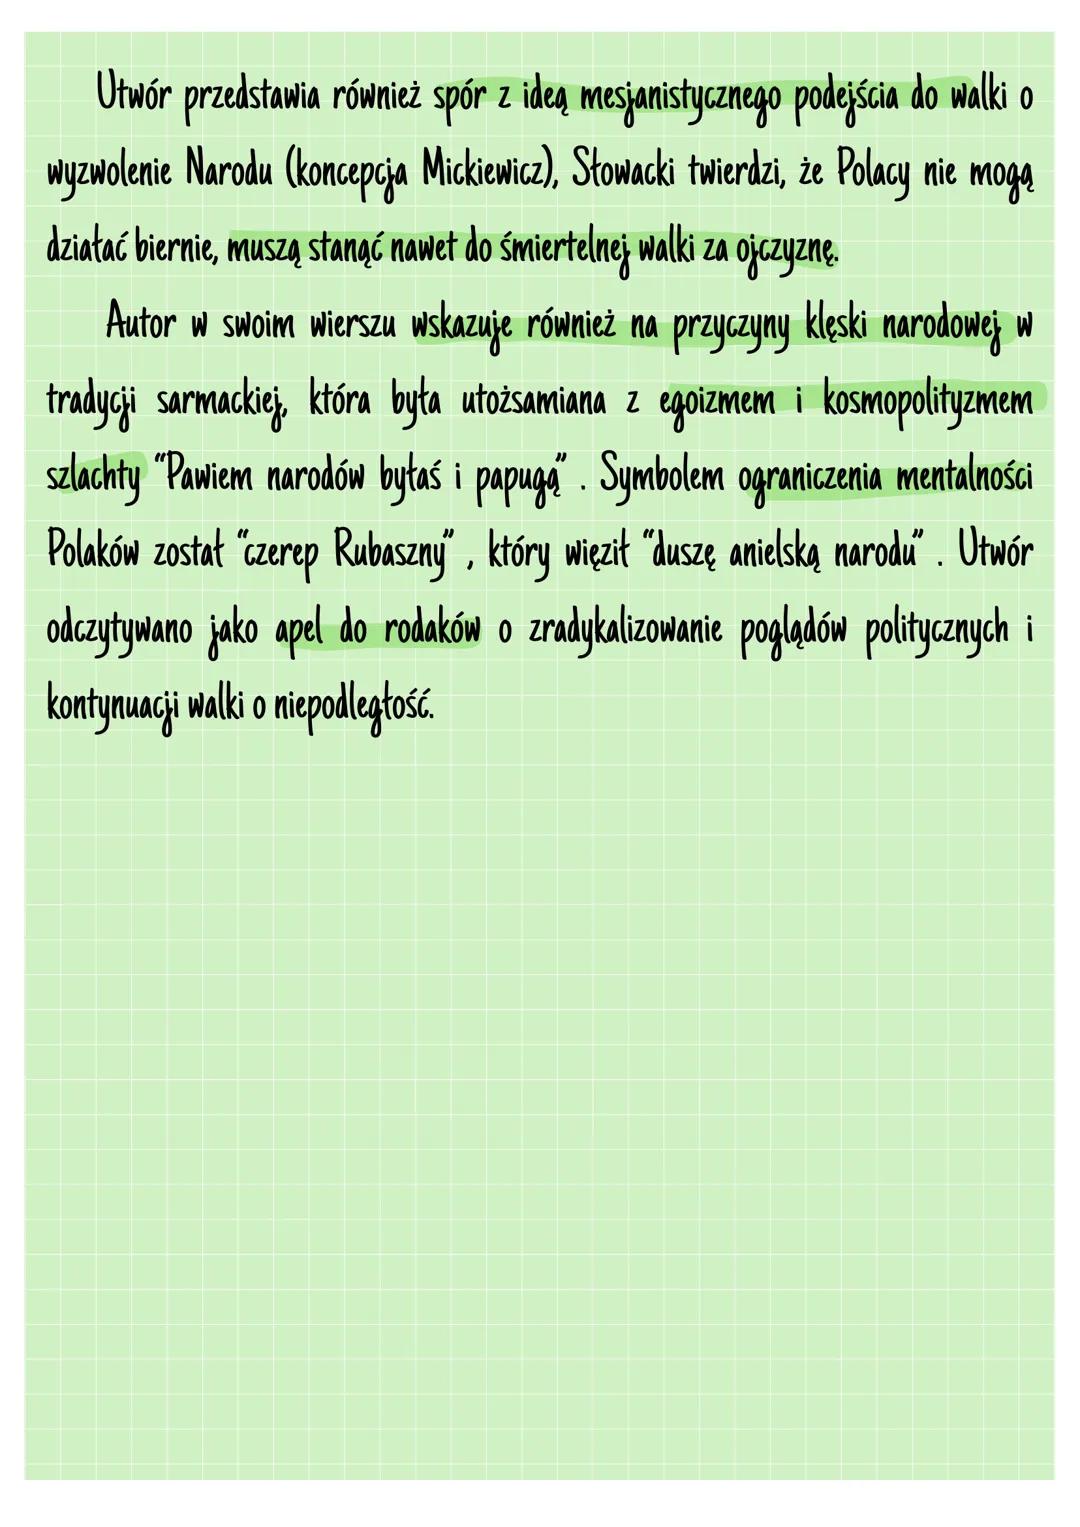 Utwór przedstawia również spór z ideą mesjanistycznego podejścia do walki o
wyzwolenie Narodu (koncepcja Mickiewicz), Słowacki twierdzi, że Polacy nie mogą
działać biernie, muszą stanąć nawet do śmiertelnej walki za ojczyznę.
Autor w swoim wierszu wskazuje również na przyczyny klęski narodowej w
tradycji sarmackiej, która była utożsamiana z egoizmem i kosmopolityzmem
szlachty “Pawiem narodów byłaś i papugą” . Symbolem ograniczenia mentalności
Polaków został “czerep Rubaszny” , który więził “duszę anielską narodu” . Utwór
odczytywano jako apel do rodaków o zradykalizowanie poglądów politycznych i
kontynuacji walki o niepodległość.